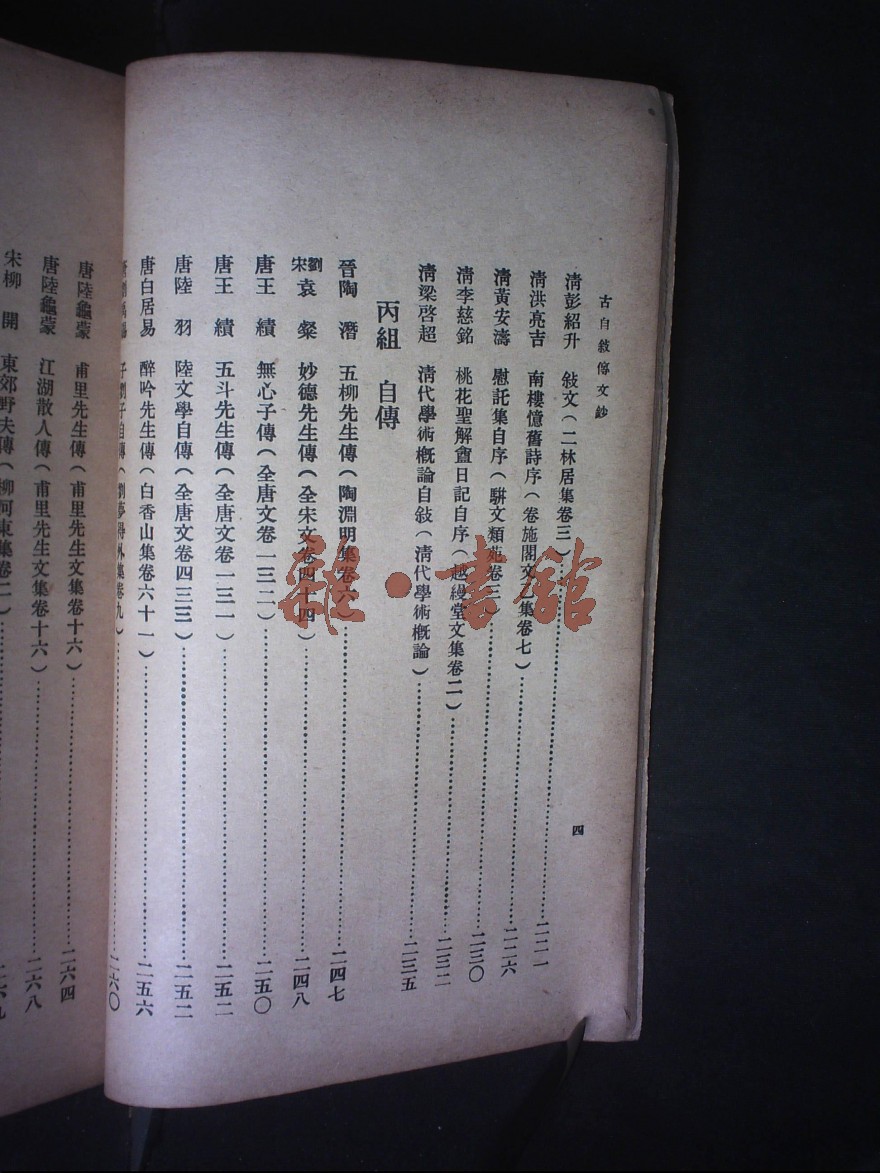 古自敍傳文鈔
四
清彭紹升 敍文(二林居集卷三)……二二一
清洪亮吉 南樓憶舊詩序(卷施閣文乙集卷七)……二二六
清黃安濤 慰託集自序(駢文類苑卷三)……二三〇
清李慈銘 桃花聖解盦日記自序(越縵堂文集卷二)……二三二
清梁啓超 清代學術概論自敍(清代學術概論)……二三五
丙組 自傳
晉陶 潛 五柳先生傳(陶淵明集卷六)……二四七
劉宋袁 粲 妙德先生傳(全宋文卷四十四)……二四八
唐王 績 無心子傳(全唐文卷一三二)……二五〇
唐王 績 五斗先生傳(全唐文卷一三一)……二五二
唐陸 羽 陸文學自傳(全唐文卷四三三)……二五二
唐白居易 醉吟先生傳(白香山集卷六十一)……二五六
唐劉禹錫 子劉子自傳(劉夢得外集卷九)……二六〇
唐陸龜蒙 甫里先生傳(甫里先生文集卷十六)……二六四
唐陸龜蒙 江湖散人傳(甫里先生文集卷十六)……二六八
宋柳 開 東郊野夫傳(柳河東集卷二)……二六九
雜·書館